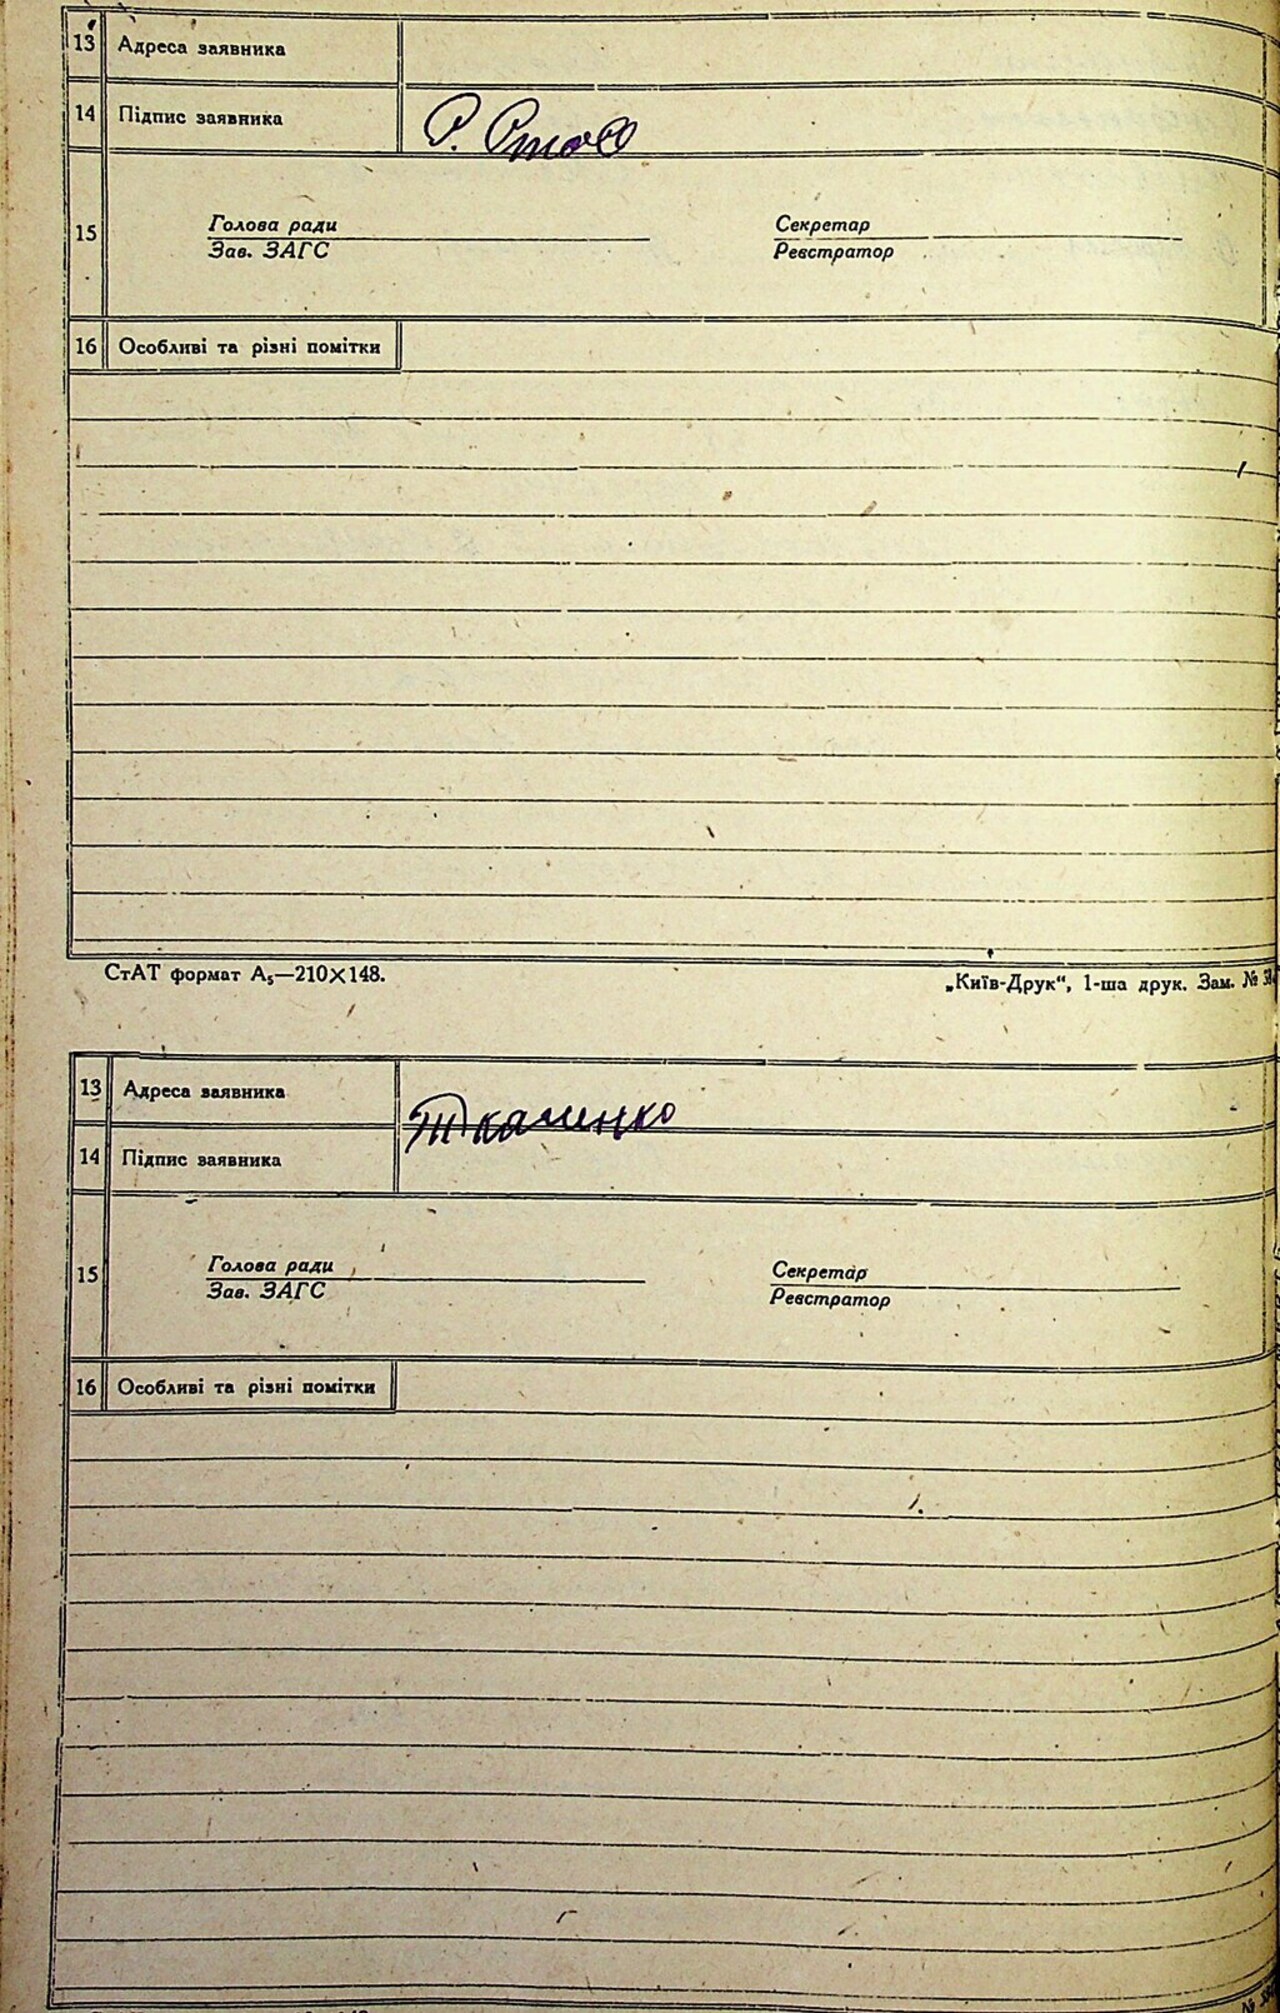 13 Адреса заявника
14 Підпис заявника
15 Голова ради Секретар
Зав. ЗАГС Реєстратор
16 Особливі та різні помітки
СтАТ формат А₅—210×148. „Київ-Друк“, 1-ша друк. Зам. №
13 Адреса заявника Ткаченко
14 Підпис заявника
15 Голова ради Секретар
Зав. ЗАГС Реєстратор
16 Особливі та різні помітки